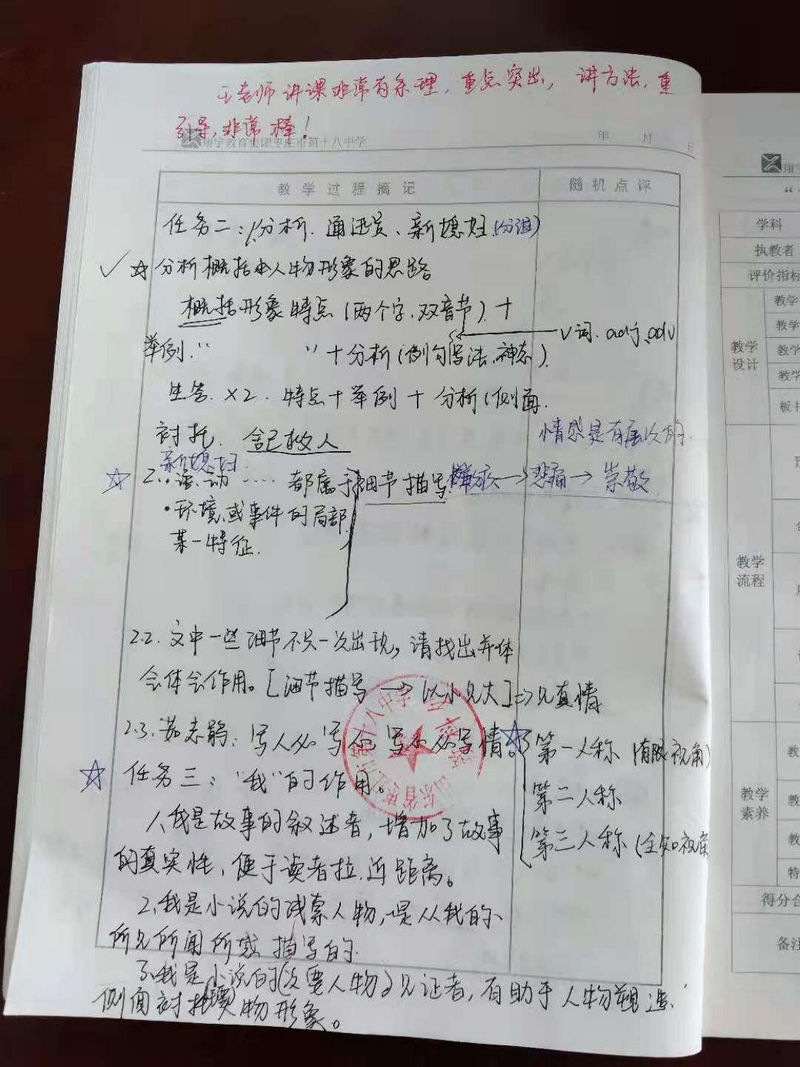 王老师讲课非常有条理,重点突出,讲方法,重
引导,非常棒!
翔宇教育集团枣庄市第十八中学
年 月 日
教学过程摘记
随机点评
任务二:1分析.通讯员、新媳妇(分组)
✓☆分析概括出人物形象的思路
概括形象特点(两个字.双音节)十
v词.adj.adv
举例."  "十分析(例句写法、神态)
生答.×2. 特点十举例十分析(侧面.
衬托. 舍己救人
情感是有层次的.
新媳妇
☆2. 动……都属于细节描写
→悲痛→崇敬
•环境或事件的局部
某一特征.
2.2.文中一些细节不只一次出现,请找出并体
会体会作用。[细节描写→以小见大]⇒见真情
2.3.茹志鹃:写人必写 写 必写情.
☆第一人称(有限视角)
☆任务三:"我"的作用。
第二人称
1、我是故事的叙述者,增加了故事
第三人称(全知视角
的真实性,便于读者拉近距离。
2、我是小说的线索人物,是从我的
所见所闻所感描写的.
3.我是小说的(次要人物)见证者,有助于人物塑造.
侧面衬托 物形象。
翔宇
学科
执教者
评价指标
教学
设计
教学
教学
教学
板书
教学
流程
教学
素养
得分合
备注